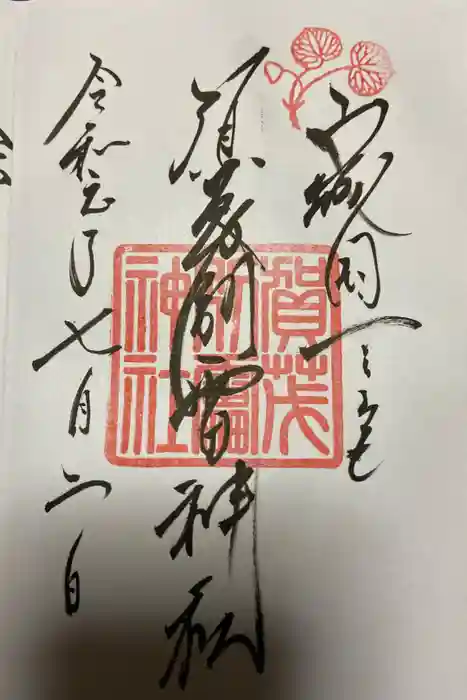 山城国一之宮
賀茂別雷神社
令和元年七月二日
賀茂
別雷
神社